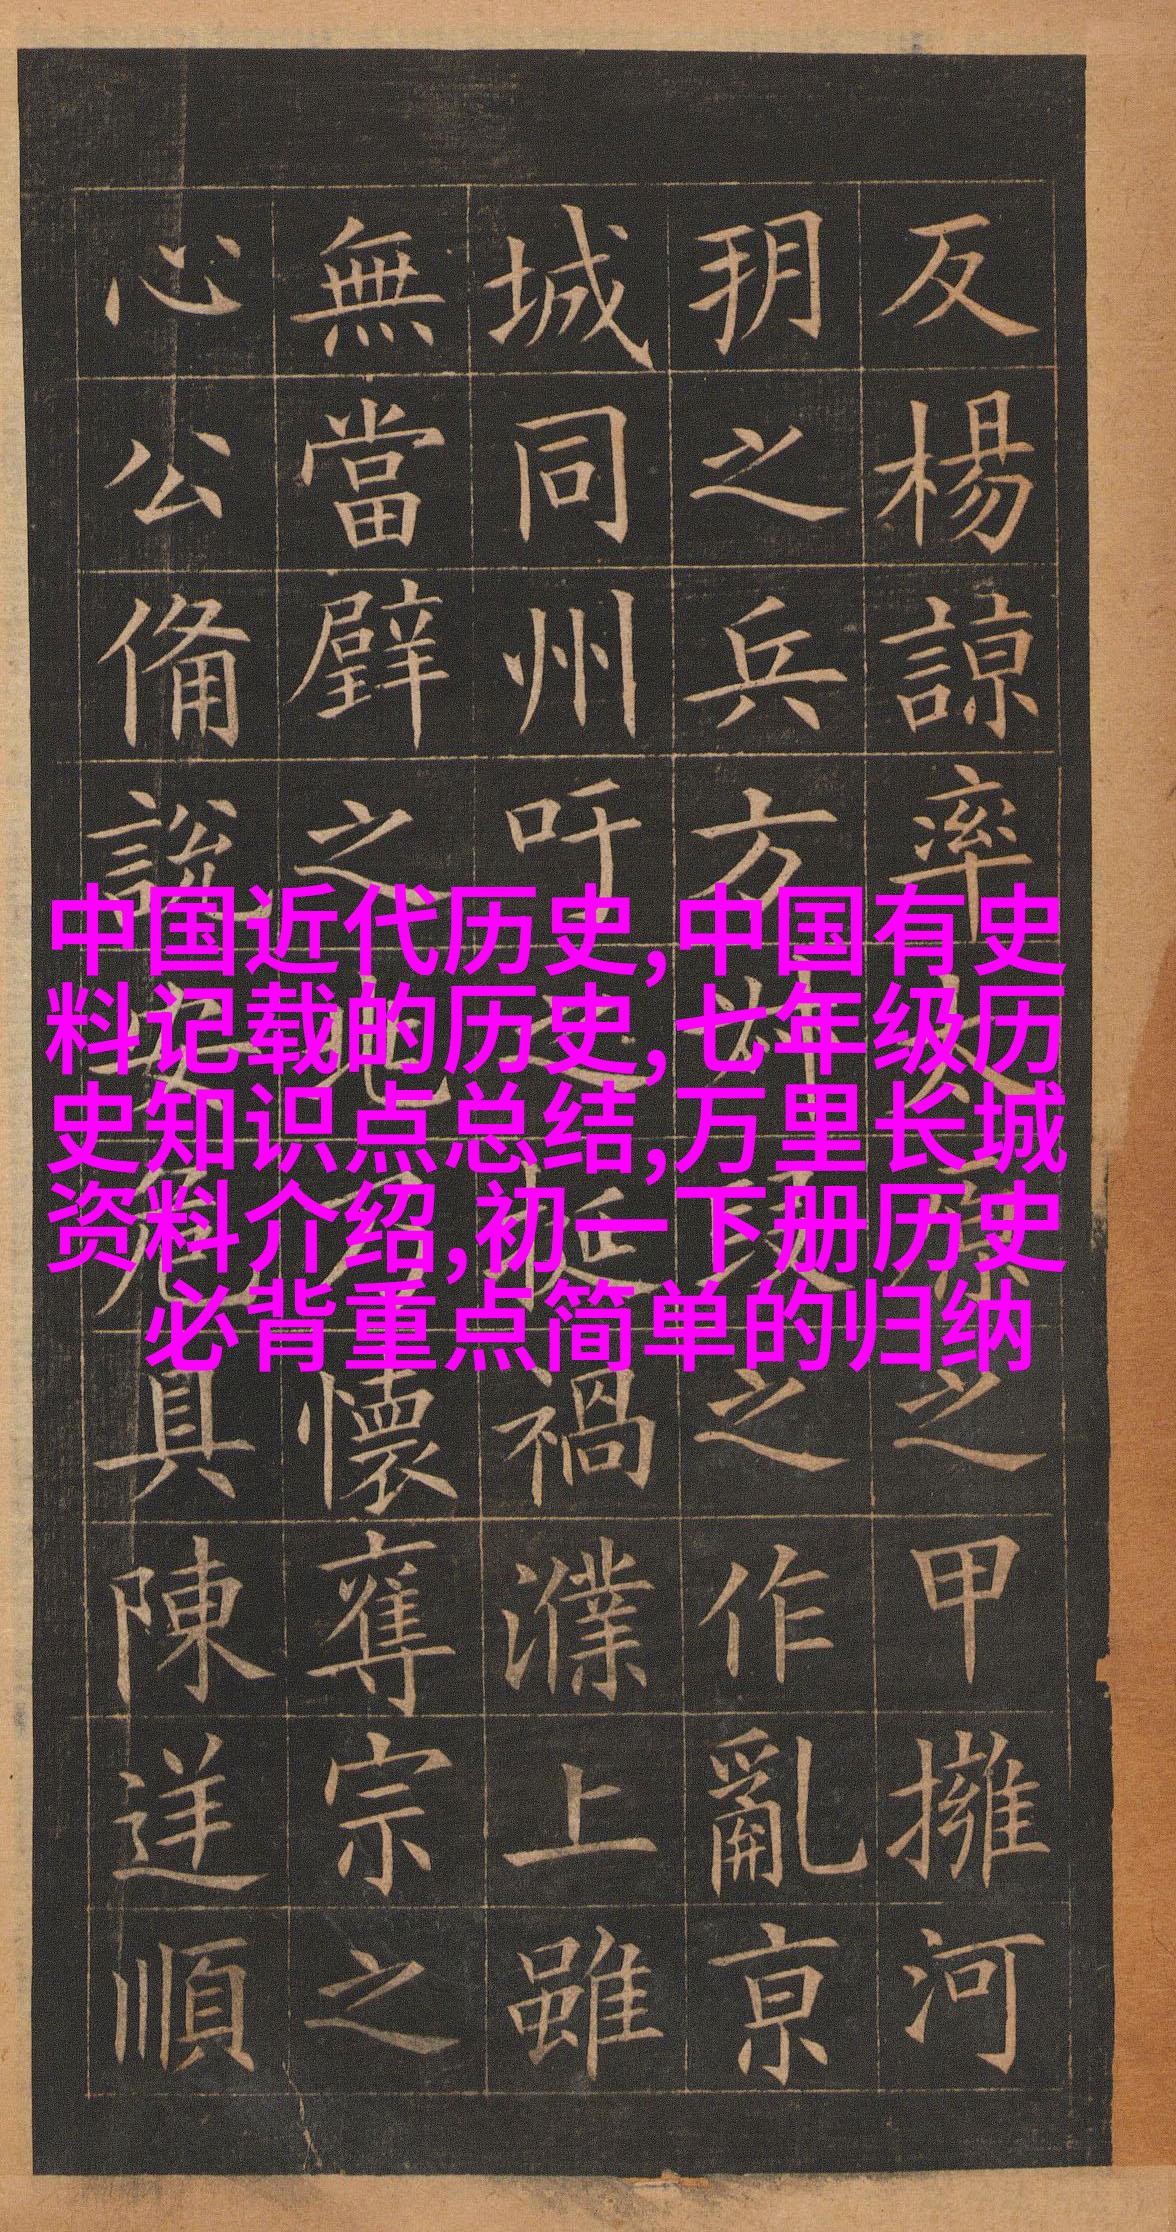 反楊諒率原之甲擁河
玥之兵方段之作亂京
城同州吁之挺禍濮上雖
無當璧之兆懷奪宗之
心公備說安危具陳逆順
中国近代历史,中国有史
料记载的历史,七年级历
史知识点总结,万里长城
资料介绍,初一下册历史
必背重点简单的归纳